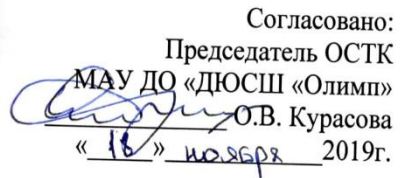 Согласовано:
Председатель ОСТК
МАУ ДО «ДЮСШ «Олимп»
О.В. Курасова
«18» ноября 2019г.